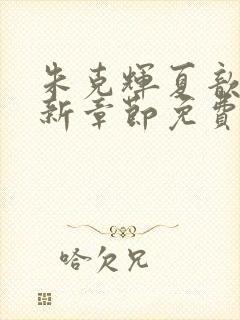 朱克輝夏歆
新章節免費
哈欠兄